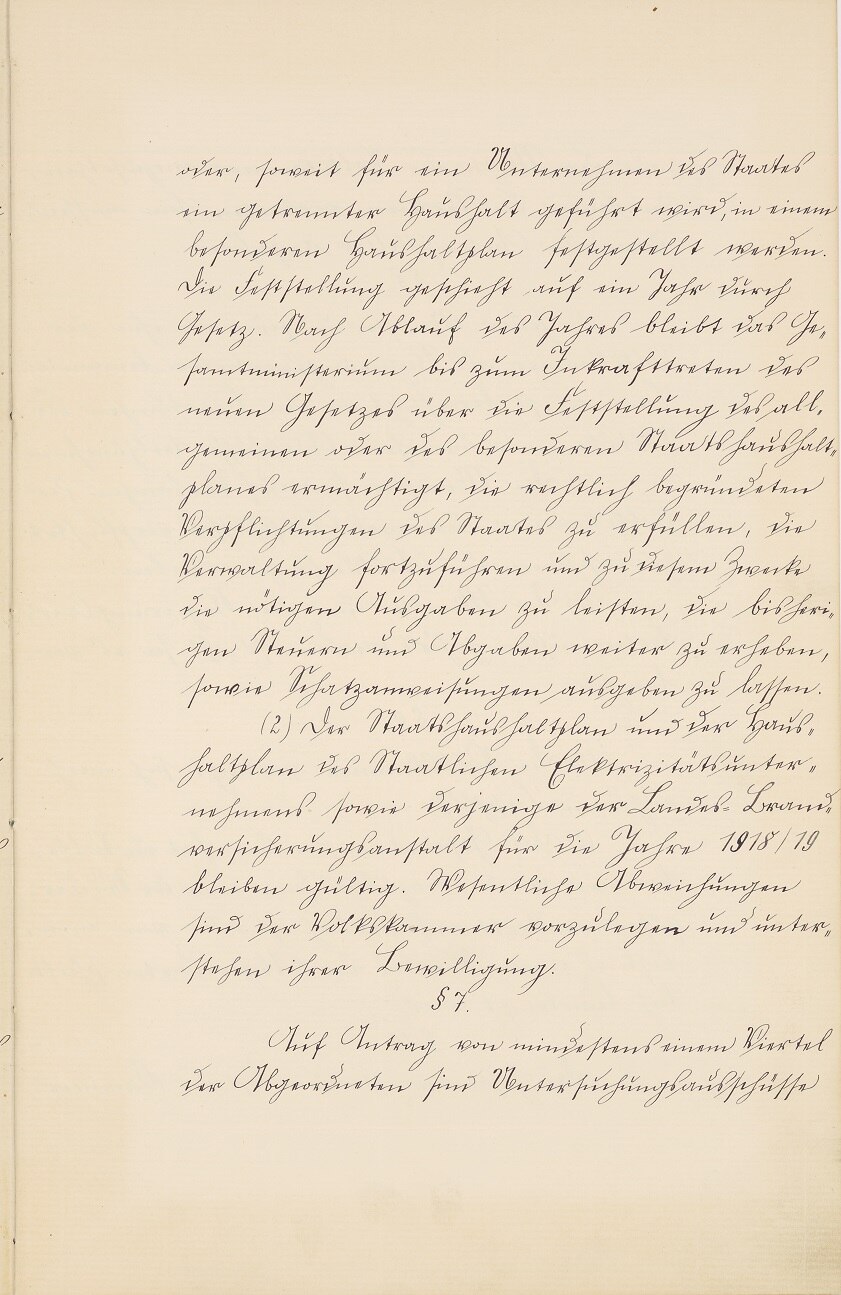 oder, soweit für ein Unternehmen des Staates
ein getrennter Haushalt geführt wird, in einem
besonderen Haushaltplan festgestellt werden.
Die Feststellung geschieht auf ein Jahr durch
Gesetz. Nach Ablauf des Jahres bleibt das Ge-
samtministerium bis zum Inkrafttreten des
neuen Gesetzes über die Feststellung des all-
gemeinen oder des besonderen Staatshaushalt-
planes ermächtigt, die rechtlich begründeten
Verpflichtungen des Staates zu erfüllen, die
Verwaltung fortzuführen und zu diesem Zwecke
die nötigen Ausgaben zu leisten, die bisheri-
gen Steuern und Abgaben weiter zu erheben,
sowie Schatzanweisungen ausgeben zu lassen.
(2) Der Staatshaushaltplan und der Haus-
haltplan des Staatlichen Elektrizitätsunter-
nehmens sowie derjenige der Landes-Brand-
versicherungsanstalt für die Jahre 1918/19
bleiben gültig. Wesentliche Abweichungen
sind der Volkskammer vorzulegen und unter-
stehen ihrer Bewilligung.
§ 7.
Auf Antrag von mindestens einem Viertel
der Abgeordneten sind Untersuchungsausschüsse